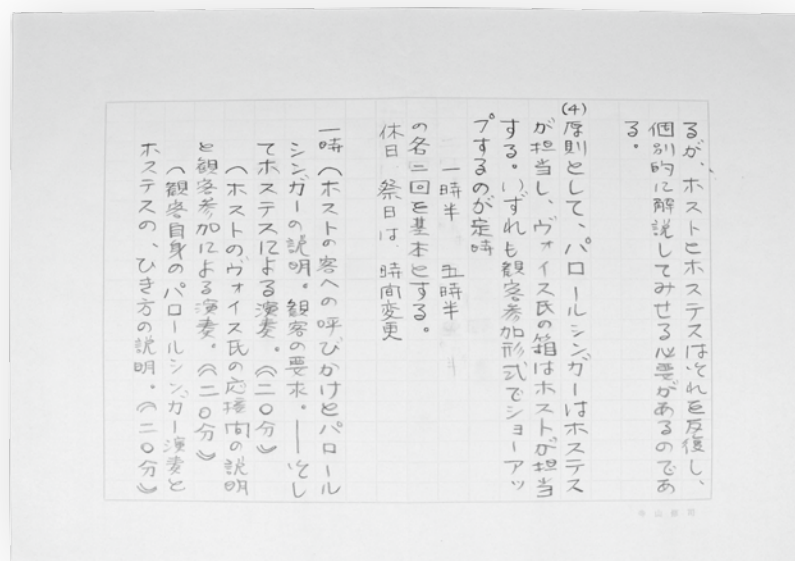 るが、ホストとホステスはそれを反復し、
個別的に解説してみせる必要があるのであ
る。
(4)原則として、パロールシンガーはホステス
が担当し、ヴォイス氏の箱はホストが担当
する。いずれも観客参加形式でショーアッ
プするのが定時
一時半 五時半
の各二回を基本とする。
休日、祭日は、時間変更
一時《ホストの客への呼びかけとパロール
シンガーの説明。観客の要求。——そし
てホステスによる演奏。《二〇分》
《ホストのヴォイス氏の応接間の説明
と観客参加による演奏。《二〇分》
《観客自身のパロールシンガー演奏と
ホステスの、ひき方の説明。《二〇分》
寺山修司